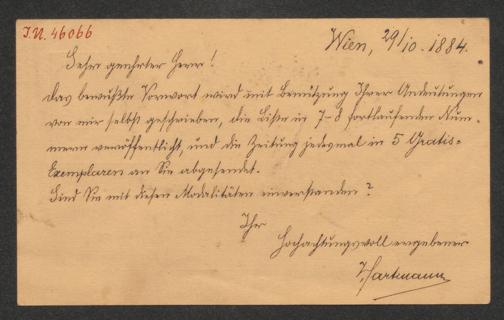 I.N. 46066
Wien, 29/10. 1884.
Sehr geehrter Herr!
Das bewußte Vorwort wird mit Benützung Ihrer Andeutungen
von mir selbst geschrieben, die Liste in 7-8 fortlaufenden Num-
mern veröffentlicht, und die Zeitung jedesmal in 5 Gratis-
Exemplaren an Sie abgesendet.
Sind Sie mit diesen Modalitäten einverstanden?
Ihr
Hochachtungsvoll ergebener
Hartmann